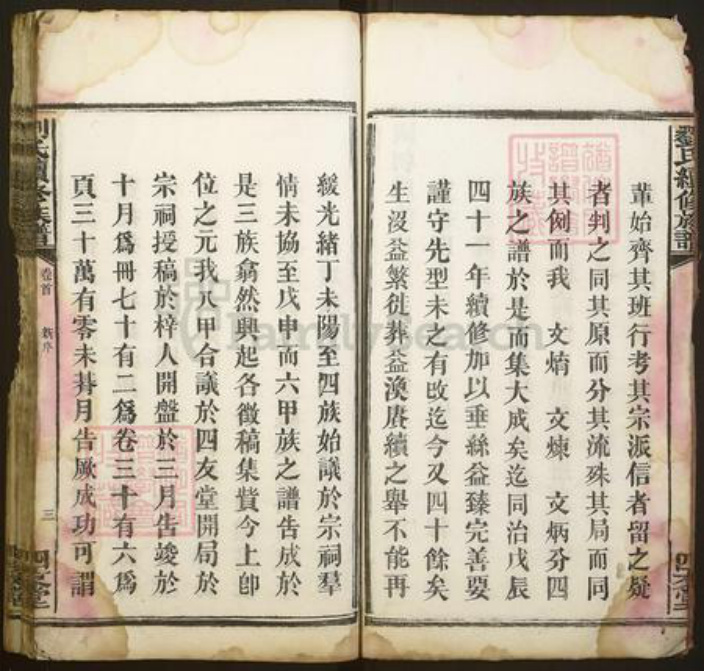 輩始齊其班行考其宗派信者留之疑
者判之同其原而分其流殊其局而同
其例而我 文焴 文煉 文炳分四
族之譜於是而集大成矣迄同治戊辰
四十一年續修加以垂絲益臻完善要
謹守先型未之有改迄今又四十餘矣
生沒益繁徙葬益渙賡續之舉不能再
劉氏續修族譜
四友堂
緩光緒丁未陽至四族始議於宗祠羣
情未協至戊申而六甲族之譜告成於
是三族翕然興起各徵稿集貲今上卽
位之元我八甲合議於四友堂開局於
宗祠授稿於梓人開盤於三月告竣於
十月爲冊七十有二爲卷三十有六爲
頁三十萬有零未朞月告厥成功可謂
劉氏續修族譜
卷首 新序
三
四友堂
FamilySearch